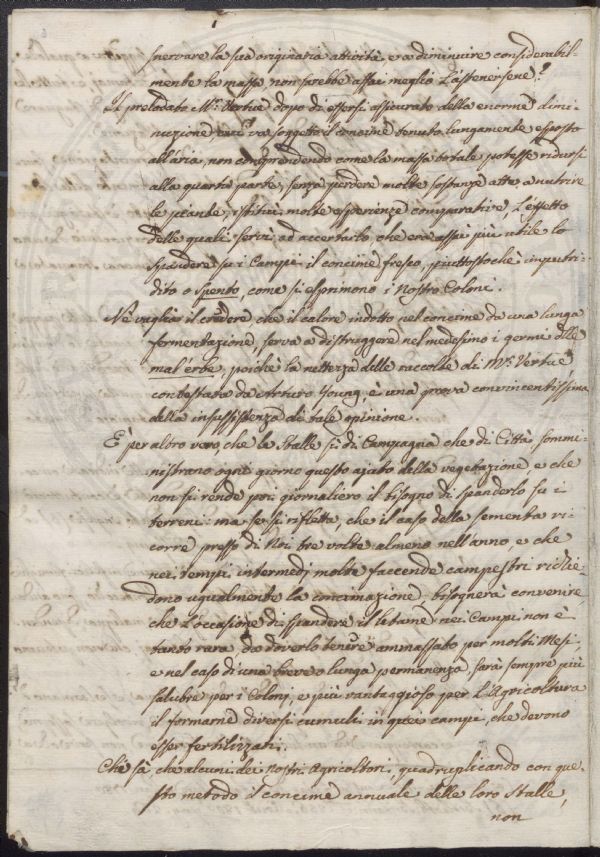 snervare la sua originaria attività, e a diminuire considerabil-
mente la massa, non sarebbe assai meglio l'astenersene?
Il prelodato Mr. Vertue dopo di essersi assicurato della enorme dimi-
nuzione, cui va soggetto il concime tenuto lungamente esposto
all'aria, non comprendendo come la massa totale potesse ridursi
alla quarta parte, senza perdere molte sostanze atte a nutrire
le piante, istituì molte esperienze comparative, l'effetto
delle quali servì ad accertarlo, che era assai più utile lo
spandere su i Campi il concime fresco, piuttostochè imputri-
dito o spento, come si esprimono i Nostri Coloni.
Nè vaglia il credere che il calore indotto nel concime da una lunga
fermentazione, serva a distruggere nel medesimo i germi delle
mal'erbe, poichè la nettezza delle raccolte di Mr. Vertue
contestata da Arturo Young, è una prova convincentissima
della insussistenza di tale opinione.
È per altro vero, che le Stalle sì di Campagna che di Città, sommi-
nistrano ogni giorno questo ajuto della vegetazione, e che
non si rende poi giornaliero il bisogno di spanderlo su i
terreni: ma se si rifletta, che il caso della sementa ri-
corre presso di Noi tre volte almeno nell'anno, e che
nei tempi intermedj molte faccende campestri richie-
dono ugualmente la concimazione, bisognerà convenire,
che l'occasione di spandere il letame nei Campi non è
tanto rara da doverlo tenere ammassato per molti Mesi,
e nel caso di una breve o lunga permanenza, sarà sempre più
salubre per i Coloni, e più vantaggioso per l'Agricoltura
il formarne diversi cumuli in quei campi, che devono
esser fertilizzati.
Chi sà, che alcuni dei nostri Agricoltori, quadruplicando con que-
sto metodo il concime annuale delle loro Stalle,
non